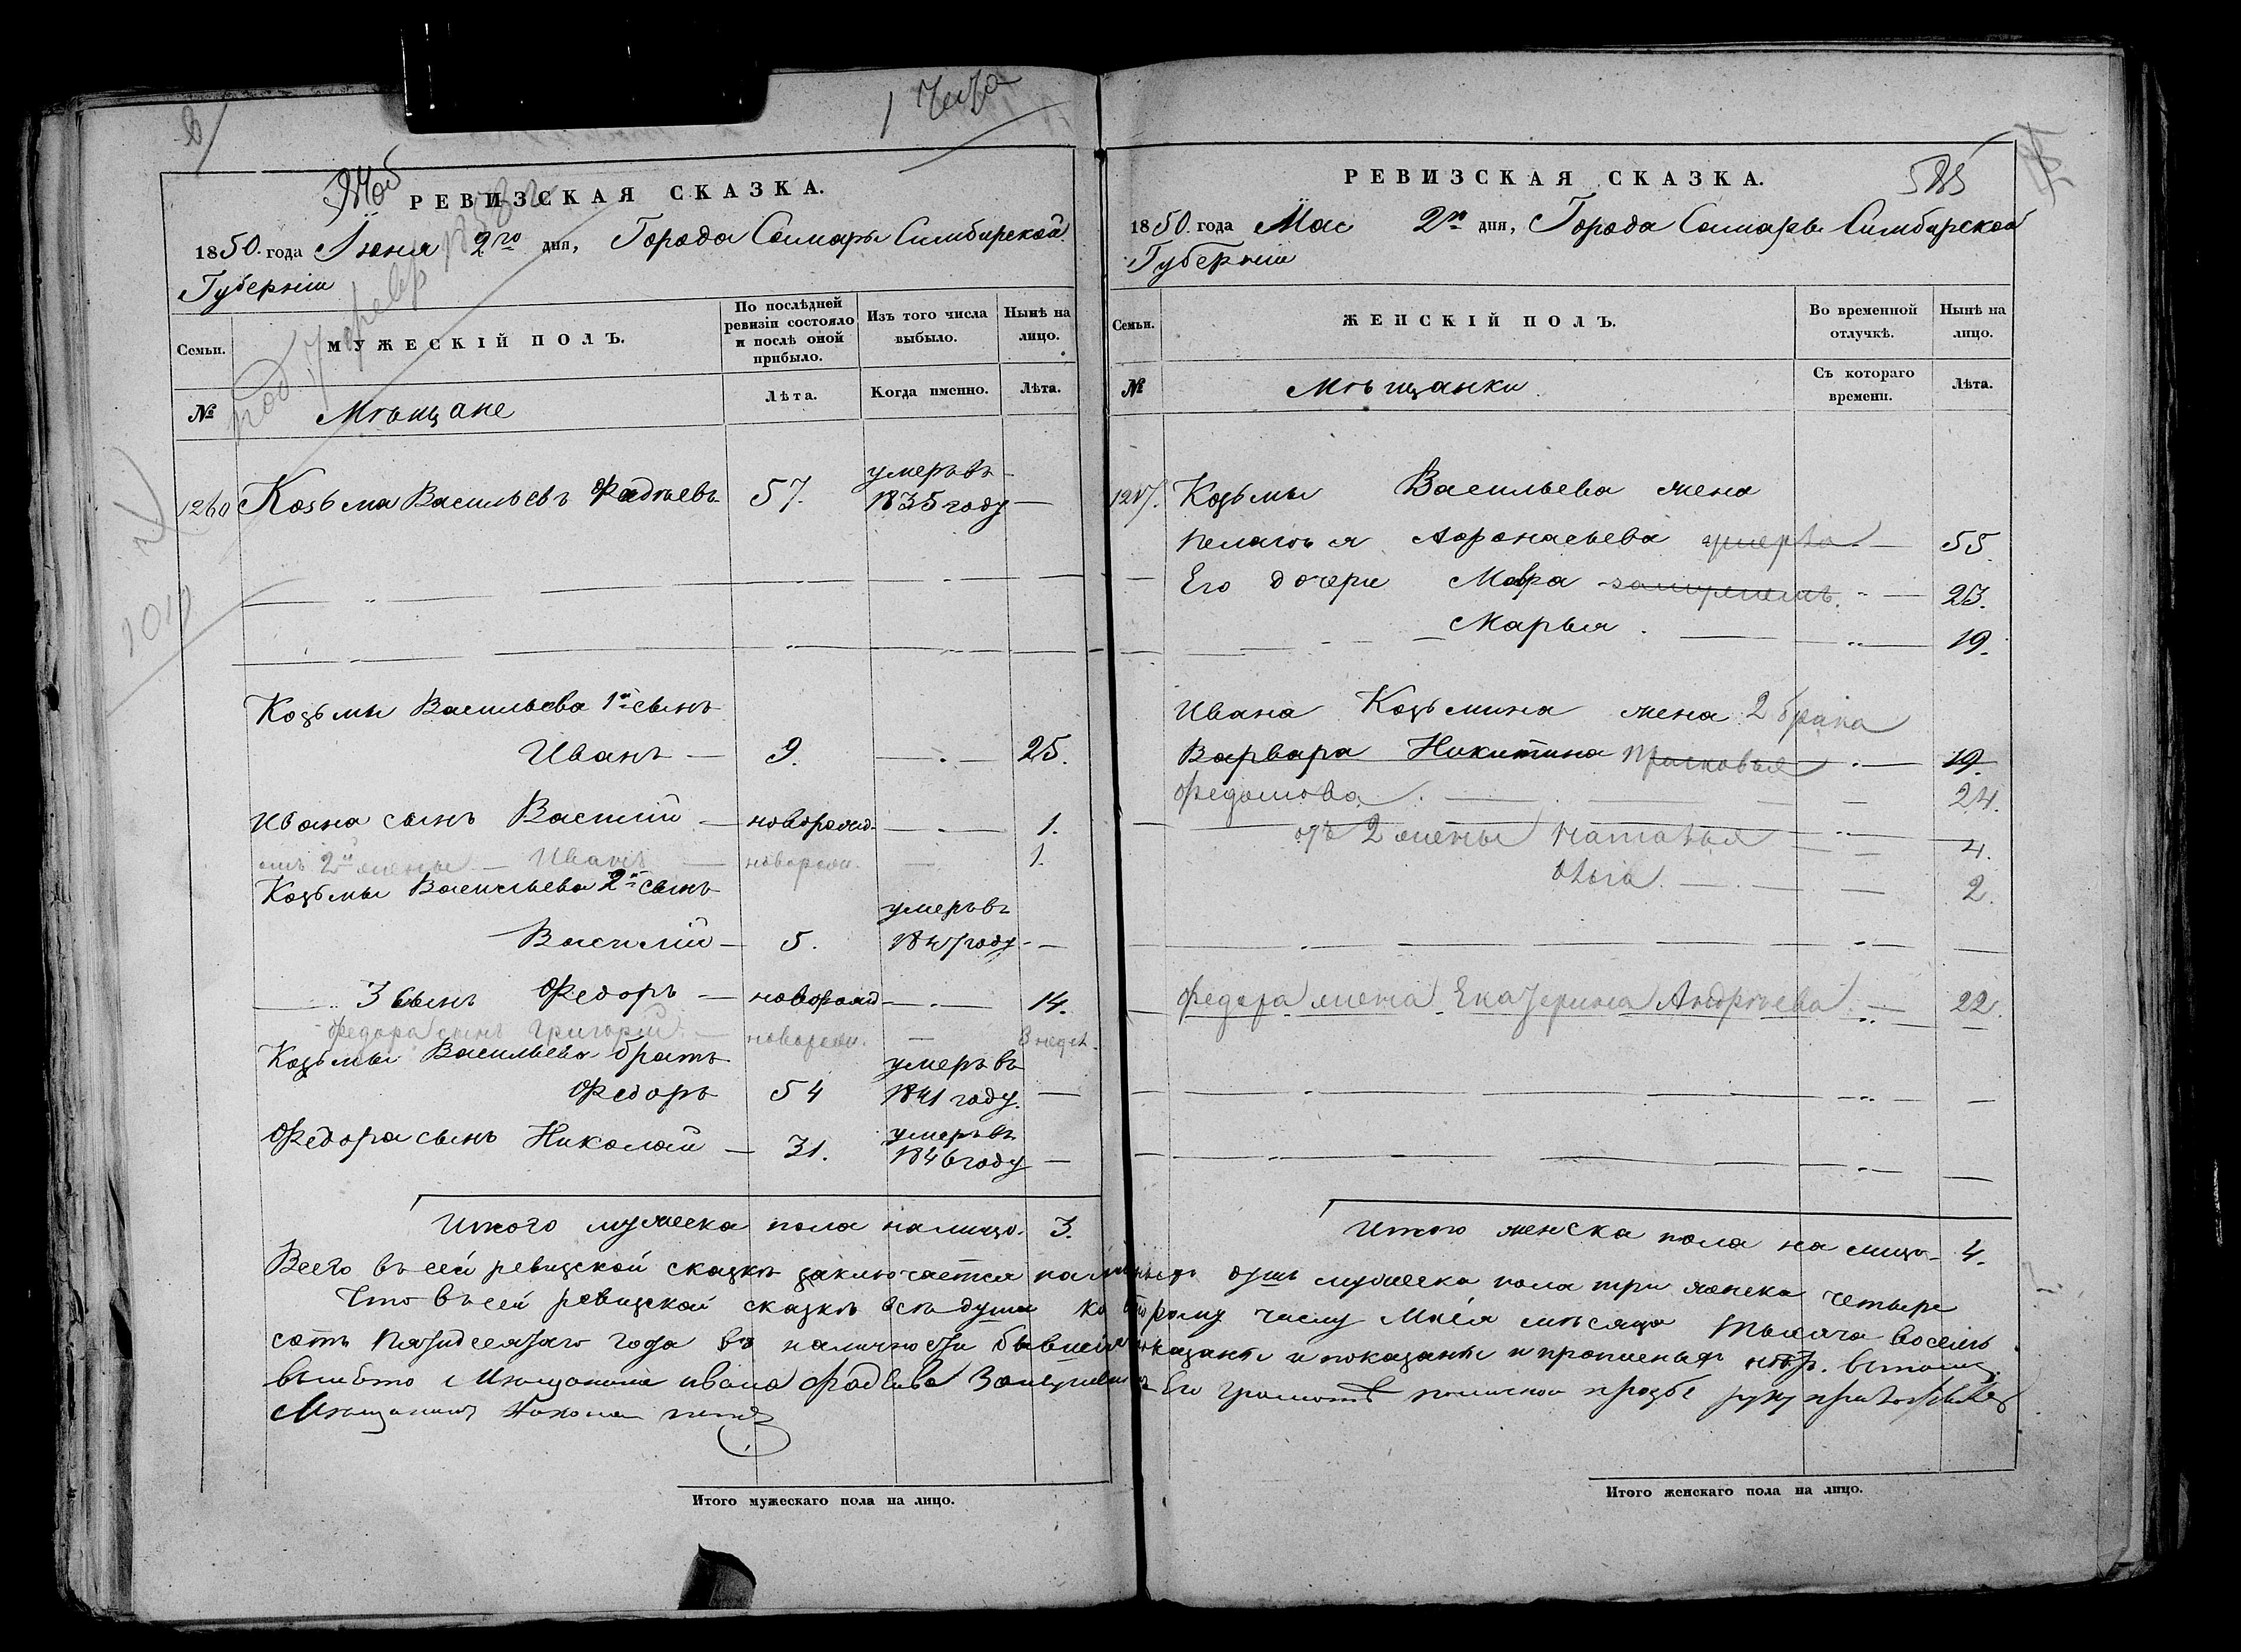 РЕВИЗСКАЯ СКАЗКА.
1850. года Июня 2го дня, Города Самары Симбирской
Губернiи
Семьи.
МУЖЕСКІЙ ПОЛЪ.
По послѣдней ревизіи состояло и послѣ оной прибыло.
Изъ того числа выбыло.
Нынѣ на лицо.
№
Мѣщане
Лѣта.
Когда именно.
Лѣта.
1260 Козьма Васильевъ Фадѣевъ 57. умеръ въ 1835 году —
Козьмы Васильева 1й сынъ
Иванъ — 9. — 25.
Ивана сынъ Василій — новорожд. — 1.
отъ 2й жены — Иванъ — новорожд. — 1.
Козьмы Васильева 2й сынъ
Василій — 5. умеръ въ 1847 году —
3 сынъ Федоръ — новорожд — 14.
Федора сынъ Григорій — новорожд. — 3 недѣл.
Козьмы Васильева братъ
Федоръ 54 умеръ въ 1841 году. —
Федора сынъ Николай — 31. умеръ въ 1846 году —
Итого мужеска пола налицо. 3.
РЕВИЗСКАЯ СКАЗКА.
1850. года Мая 2го дня, Города Самары Симбирской
Губерніи
Семьи.
ЖЕНСКІЙ ПОЛЪ.
Во временной отлучкѣ.
Нынѣ на лицо.
№
Мѣщанки
Съ котораго времени.
Лѣта.
Козьмы Васильева жена
Пелагѣя Афонасьева умерла — 55.
Его дочери Мавра замужемъ. — 23.
Марья. — 19.
Ивана Козьмина жена 2 брака
Варвара Никитина Прасковья — 19.
Федотова — 24.
отъ 2 жены Наталья — 4.
Ольга — 2.
Федора жена Екатерина Андрѣева — 22.
Итого женска пола на лицо — 4.
Всего въ сей ревизской сказкѣ заключается душъ мужеска пола три женска четыре
Что въ сей ревизской сказкѣ всѣ души ко второму числу Маія мѣсяца тысяча восемь
сотъ Пятидесятаго года въ наличности бывшія показаны и
вмѣсто Мѣщанина Ивана Фадѣева Его прозбѣ руку приложилъ
Мѣщанинъ
Итого мужескаго пола на лицо.
Итого женскаго пола на лицо.